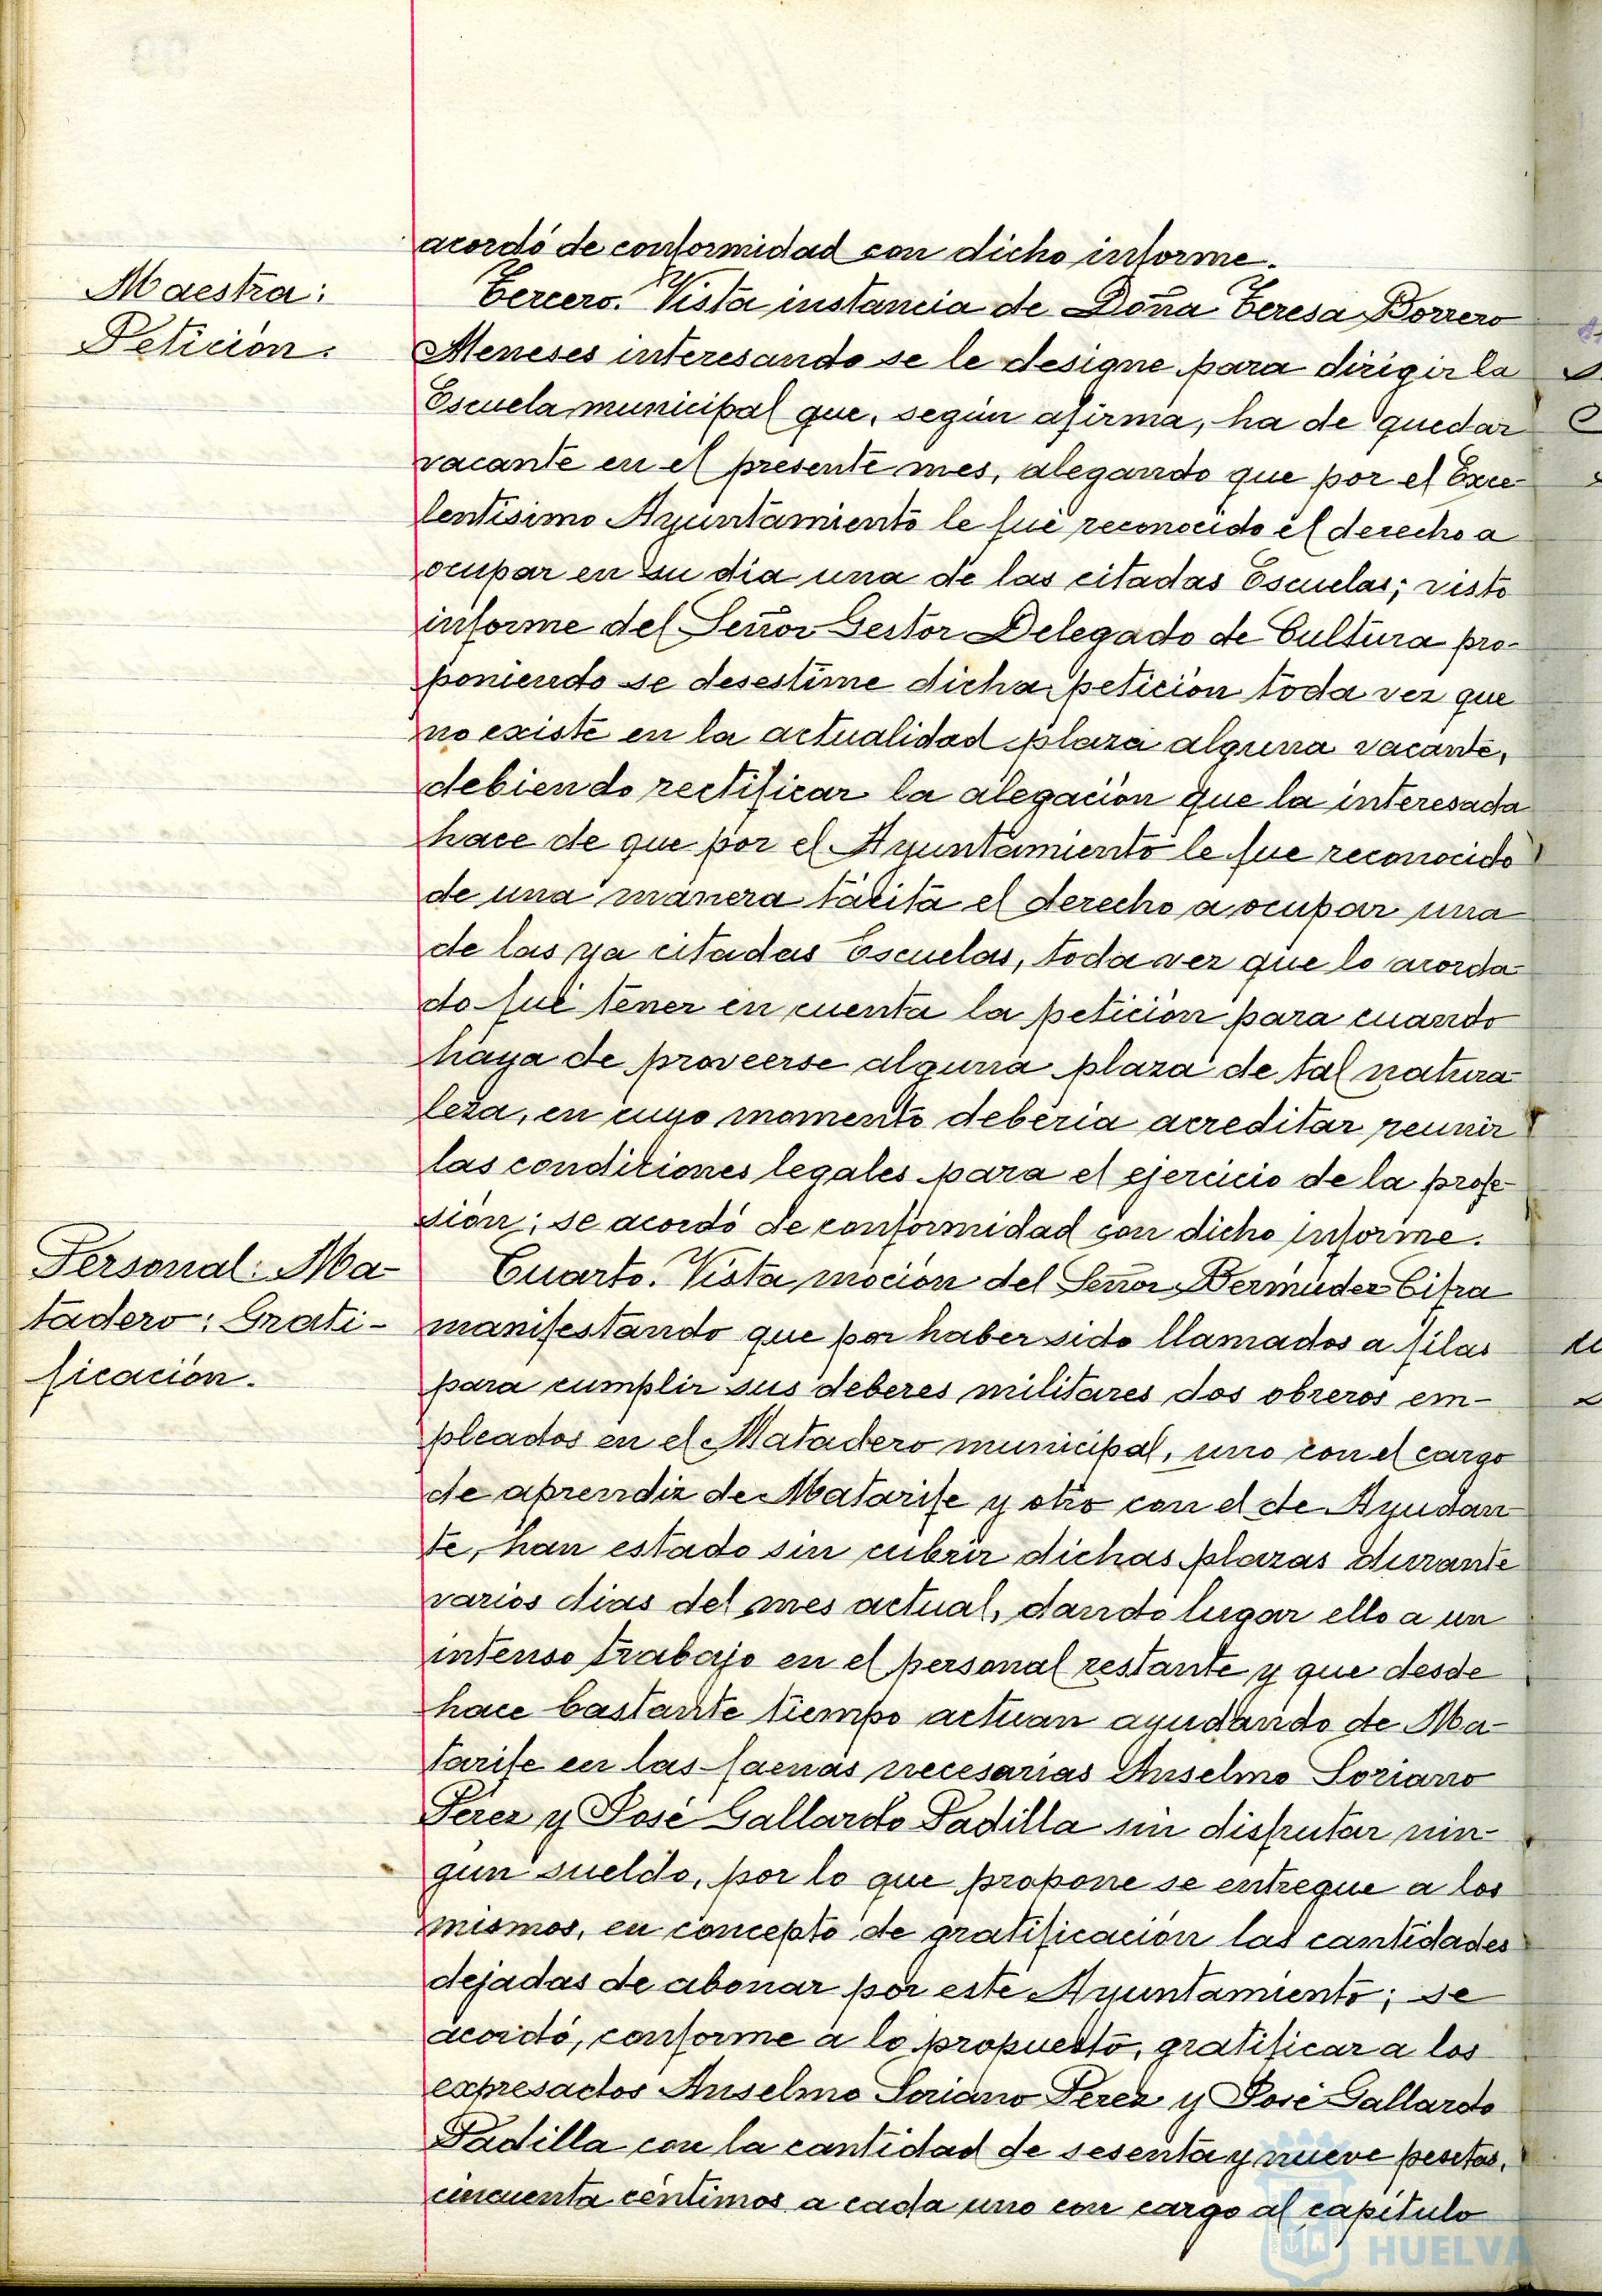 acordó de conformidad con dicho informe.
Maestra:
Petición.
Tercero. Vista instancia de Doña Teresa Borrero
Meneses interesando se le designe para dirigir la
Escuela municipal que, según afirma, ha de quedar
vacante en el presente mes, alegando que por el Exce-
lentísimo Ayuntamiento le fué reconocido el derecho a
ocupar en su dia una de las citadas Escuelas; visto
informe del Señor Gestor Delegado de Cultura pro-
poniendo se desestime dicha petición toda vez que
no existe en la actualidad plaza alguna vacante,
debiendo rectificar la alegación que la interesada
hace de que por el Ayuntamiento le fue reconocido
de una manera tácita el derecho a ocupar una
de las ya citadas Escuelas, toda vez que lo acorda-
do fué tener en cuenta la petición para cuando
haya de proveerse alguna plaza de tal natura-
leza, en cuyo momento debería acreditar reunir
las condiciones legales para el ejercicio de la profe-
sión; se acordó de conformidad con dicho informe.
Personal: Ma-
tadero: Grati-
ficación.
Cuarto. Vista moción del Señor Bermúdez Cifra
manifestando que por haber sido llamados a filas
para cumplir sus deberes militares dos obreros em-
pleados en el Matadero municipal, uno con el cargo
de aprendiz de Matarife y otro con el de Ayudan-
te, han estado sin cubrir dichas plazas durante
varios dias del mes actual, dando lugar ello a un
intenso trabajo en el personal restante y que desde
hace bastante tiempo actuan ayudando de Ma-
tarife en las faenas necesarias Anselmo Soriano
Pérez y José Gallardo Padilla sin disfrutar nin-
gún sueldo, por lo que propone se entregue a los
mismos, en concepto de gratificación las cantidades
dejadas de abonar por este Ayuntamiento; se
acordó, conforme a lo propuesto, gratificar a los
expresados Anselmo Soriano Perez y José Gallardo
Padilla con la cantidad de sesenta y nueve pesetas,
cincuenta céntimos a cada uno con cargo al capítulo
HUELVA